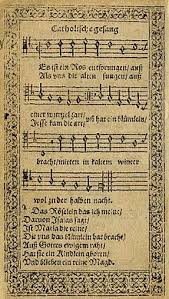 Catholische gesang
Es ist ein Ros entsprungen/ auß
Als vns die alten sungen/ auß
einer wurtzel zart/
Jesse kam die art/
vñ hat ein blümlein/
bracht/ mitten in kaltem winter
wol zu der halben nacht.
Das Röselein das ich meine/
Daruon Isaias sagt/
Ist Maria die reine/
Die vns das blümlein hat bracht/
Auß Gottes ewigem raht/
Hat sie ein Kindlein geboren/
Vnd blieben ein reine Magd.